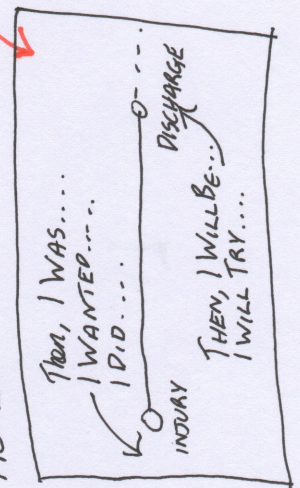 Then, I WAS.....
I WANTED.....
I DID....
INJURY
DISCHARGE
THEN, I WILL BE...
I WILL TRY....